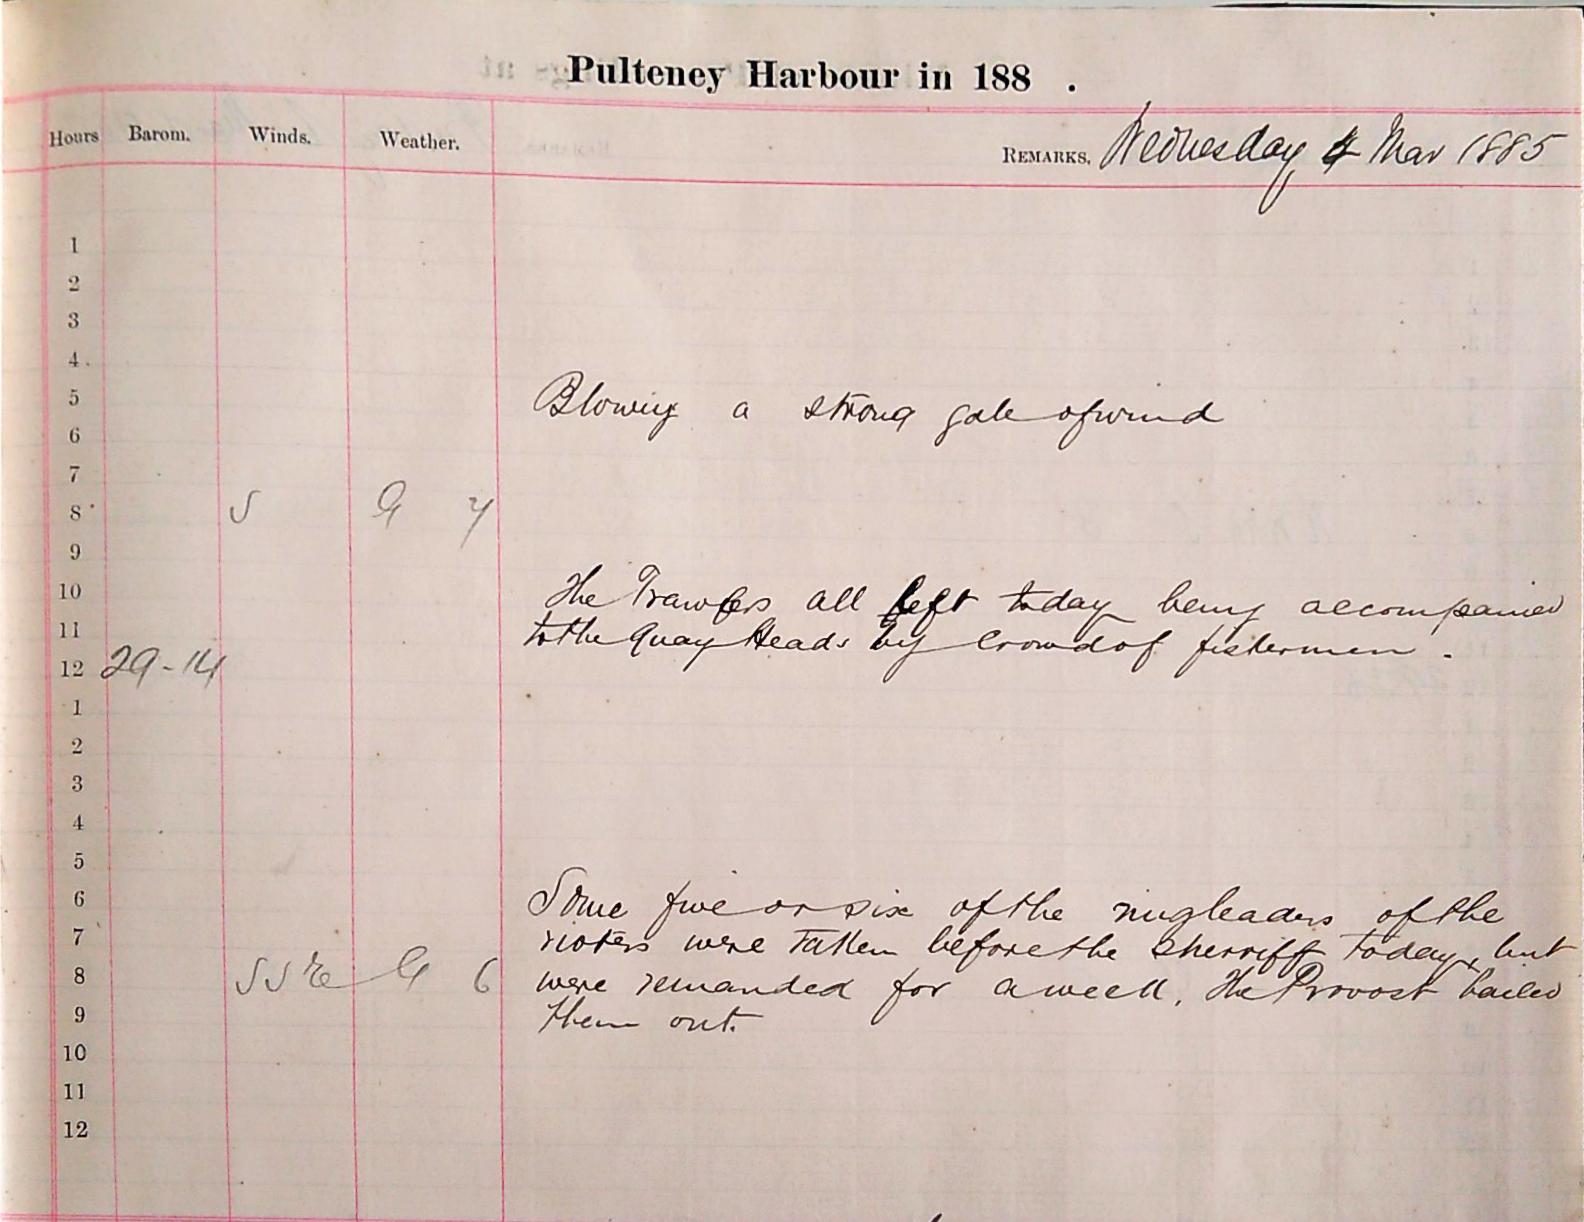 Pulteney Harbour in 188 .
Hours Barom. Winds. Weather. REMARKS. Wednesday 4 Mar 1885
1
2
3
4
5 Blowing a strong gale of wind
6
7
8 S G 7
9
10 The Trawlers all left today being accompanied
11 to the Quay Heads by Crowd of fishermen .
12 29-14
1
2
3
4
5
6 Some five or six of the ringleaders of the
7 rioters were taken before the Sherriff today, but
8 SSE G 6 were remanded for a week. The Provost bailed
9 them out.
10
11
12